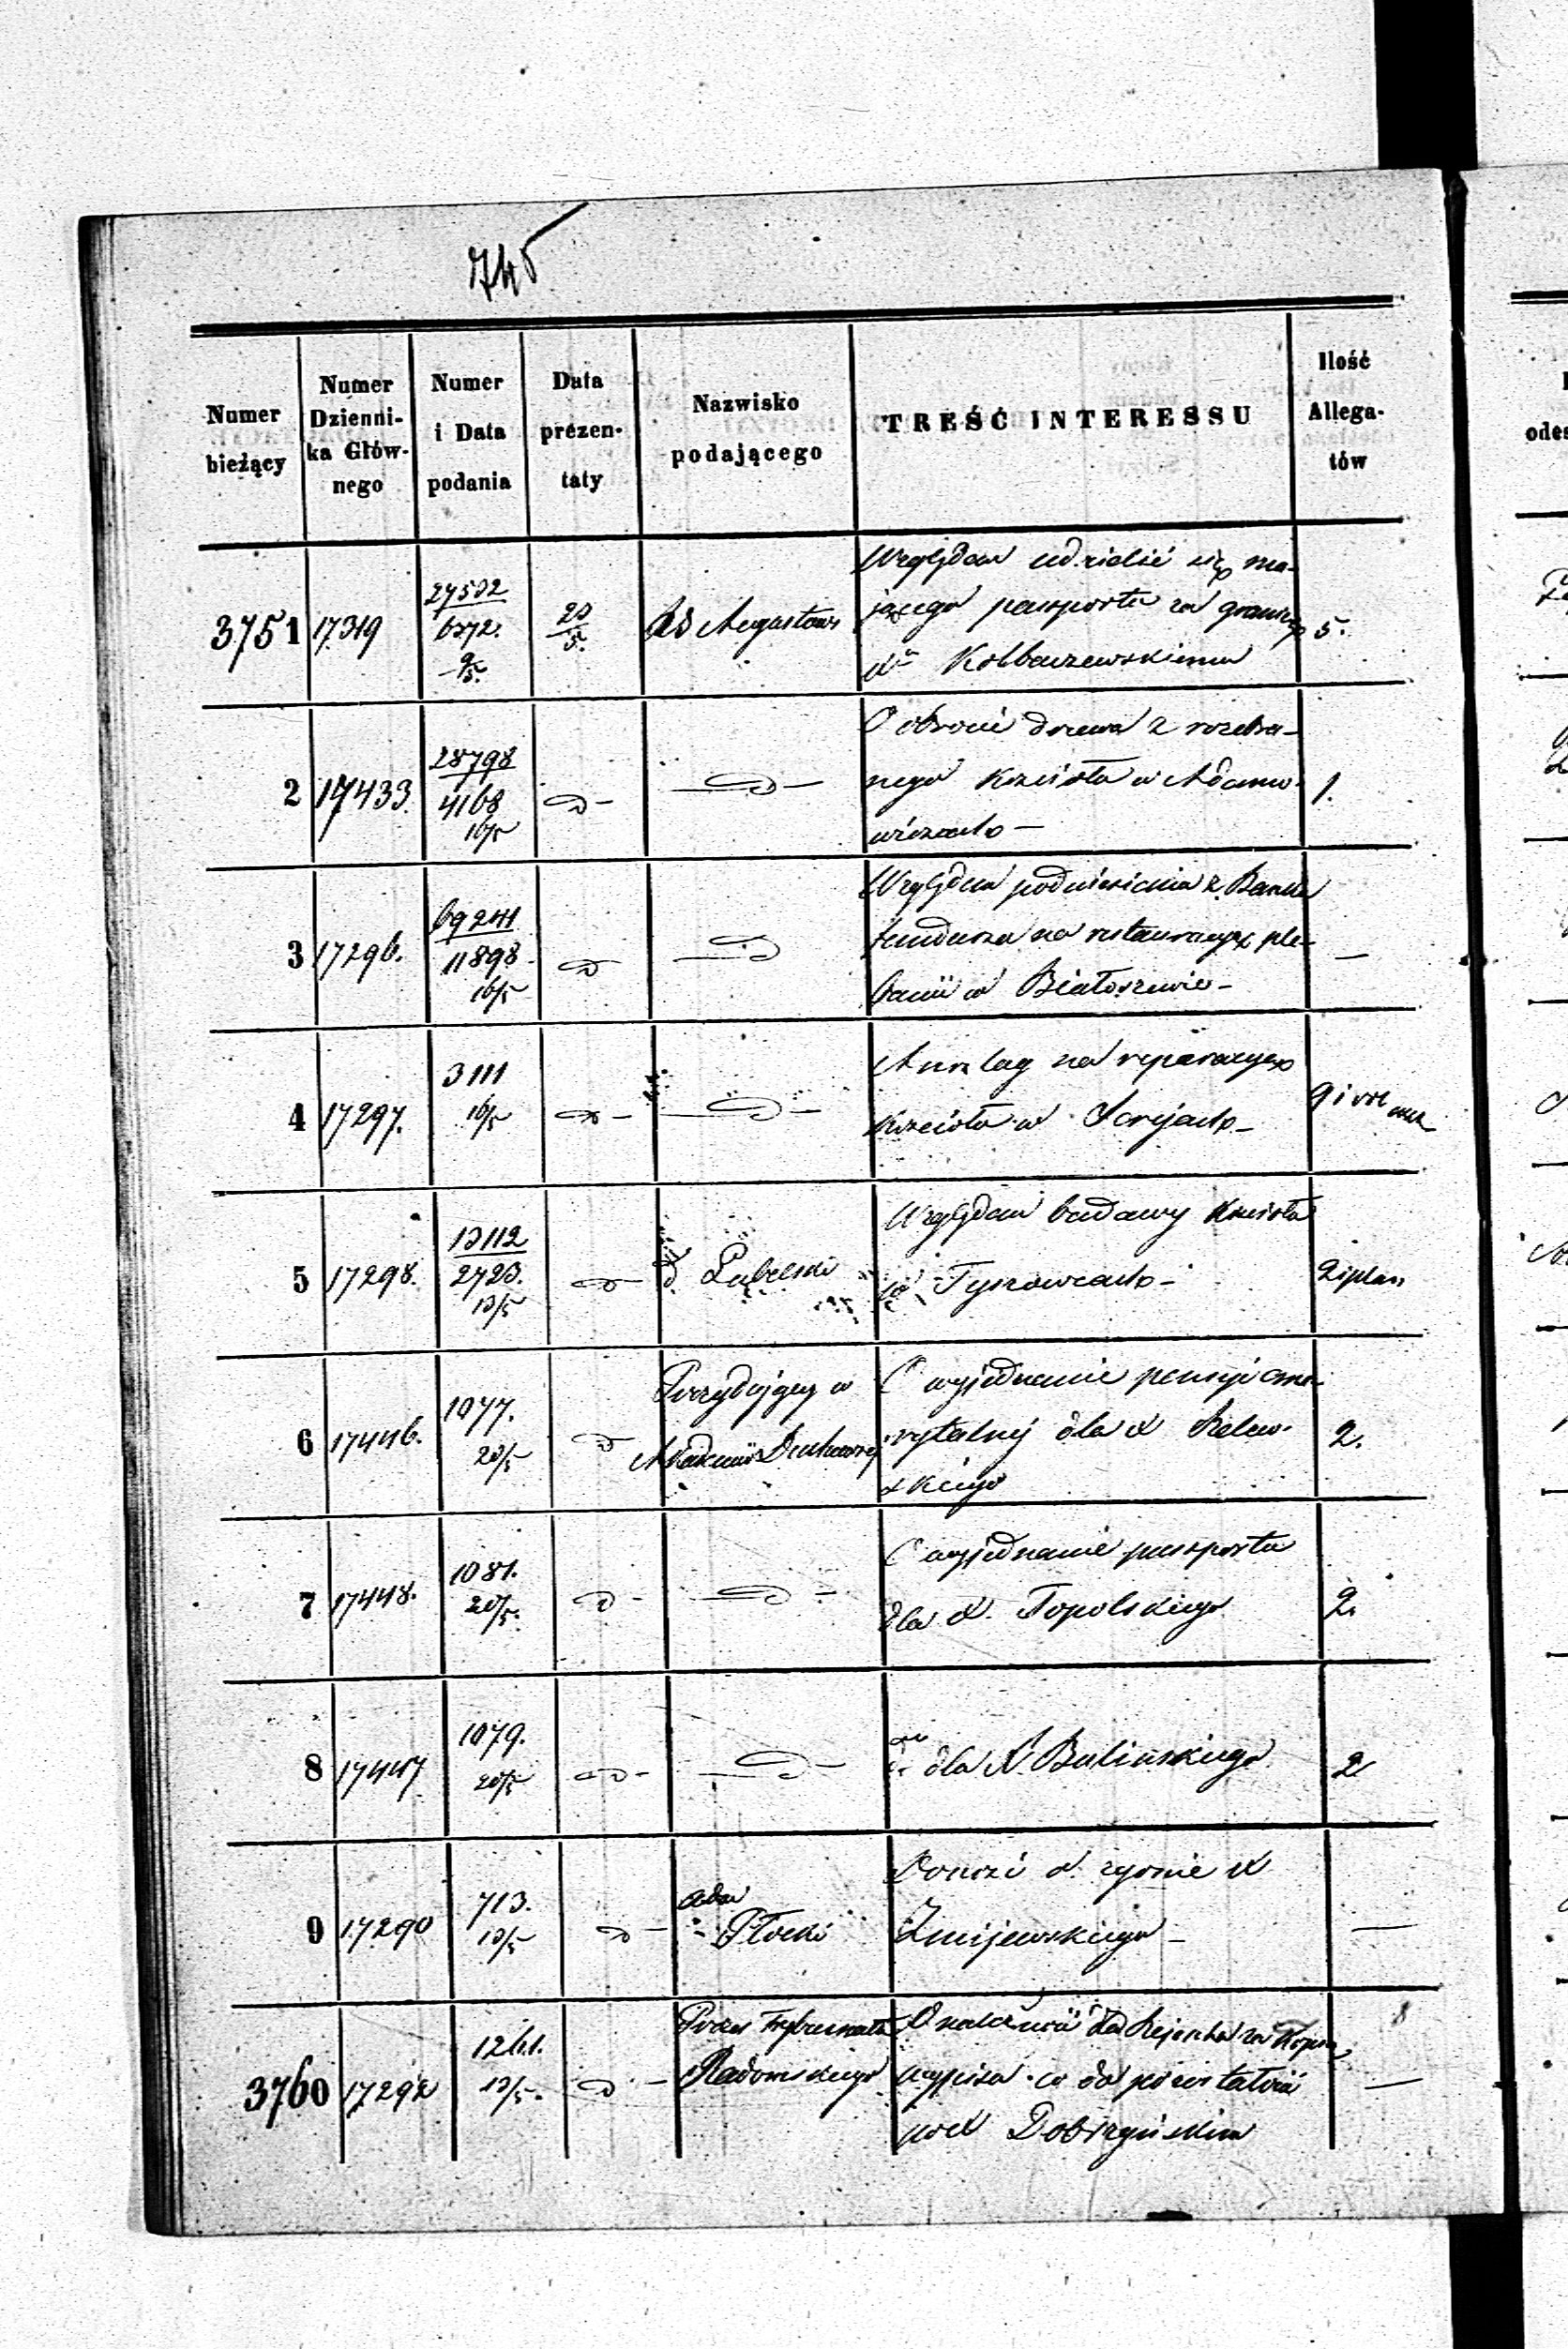 745
Numer bieżący
Numer Dzienni- ka Głów- nego
Numer i Data podania
Data prezen- taty
Nazwisko podającego
TREŚĆ INTERESSU
Ilość Allega- tów
3751 17319 27502 6272. 9/5. 20/5. Augustows
Względem udzielić się ma-
jącego passportu za granicę 5.
Xu Kołbaszewskiemu
2 17433 28798 4168 16/5 D-
O obrocie drzewa z rozebra-
nego kościoła w Adamo- 1.
wiczach -
3 17296. 69241 11898 16/5 D
Względem podniesienia z Banku
funduszu na restauracyę ple- -
banii w Białoszewie -
4 17297. 3111 16/5 D-
Anszlag na reparacyę
kościoła w Serejach -
5 17298. 13112 2723. 13/5 D- Lubelski
Względem budowy kościoła
w Tyszowcach - 2 i plan
6 17446. 1077. 20/5 D
Prezydujący w
Akademii Duchownej
O wyjednanie pensyi eme-
rytalnej dla X 2.
skiego
7 17448. 1081. 20/5. D-
O wyjednanie paszportu
dla X. Topolskiego 2.
8 17447 1079. 20/5 D-
do dla X. Balińskiego 2
9 17290 713. 13/5 D- Adm
Płocki
Donosi o zgonie X
Żmijewskiego -
3760 17292 1261. 13/5. D-
Prezes Trybunału
Radomskiego
O należności dla Rejenta za kopię
wypisu co do pozostałości
po X Dobrzyńskim